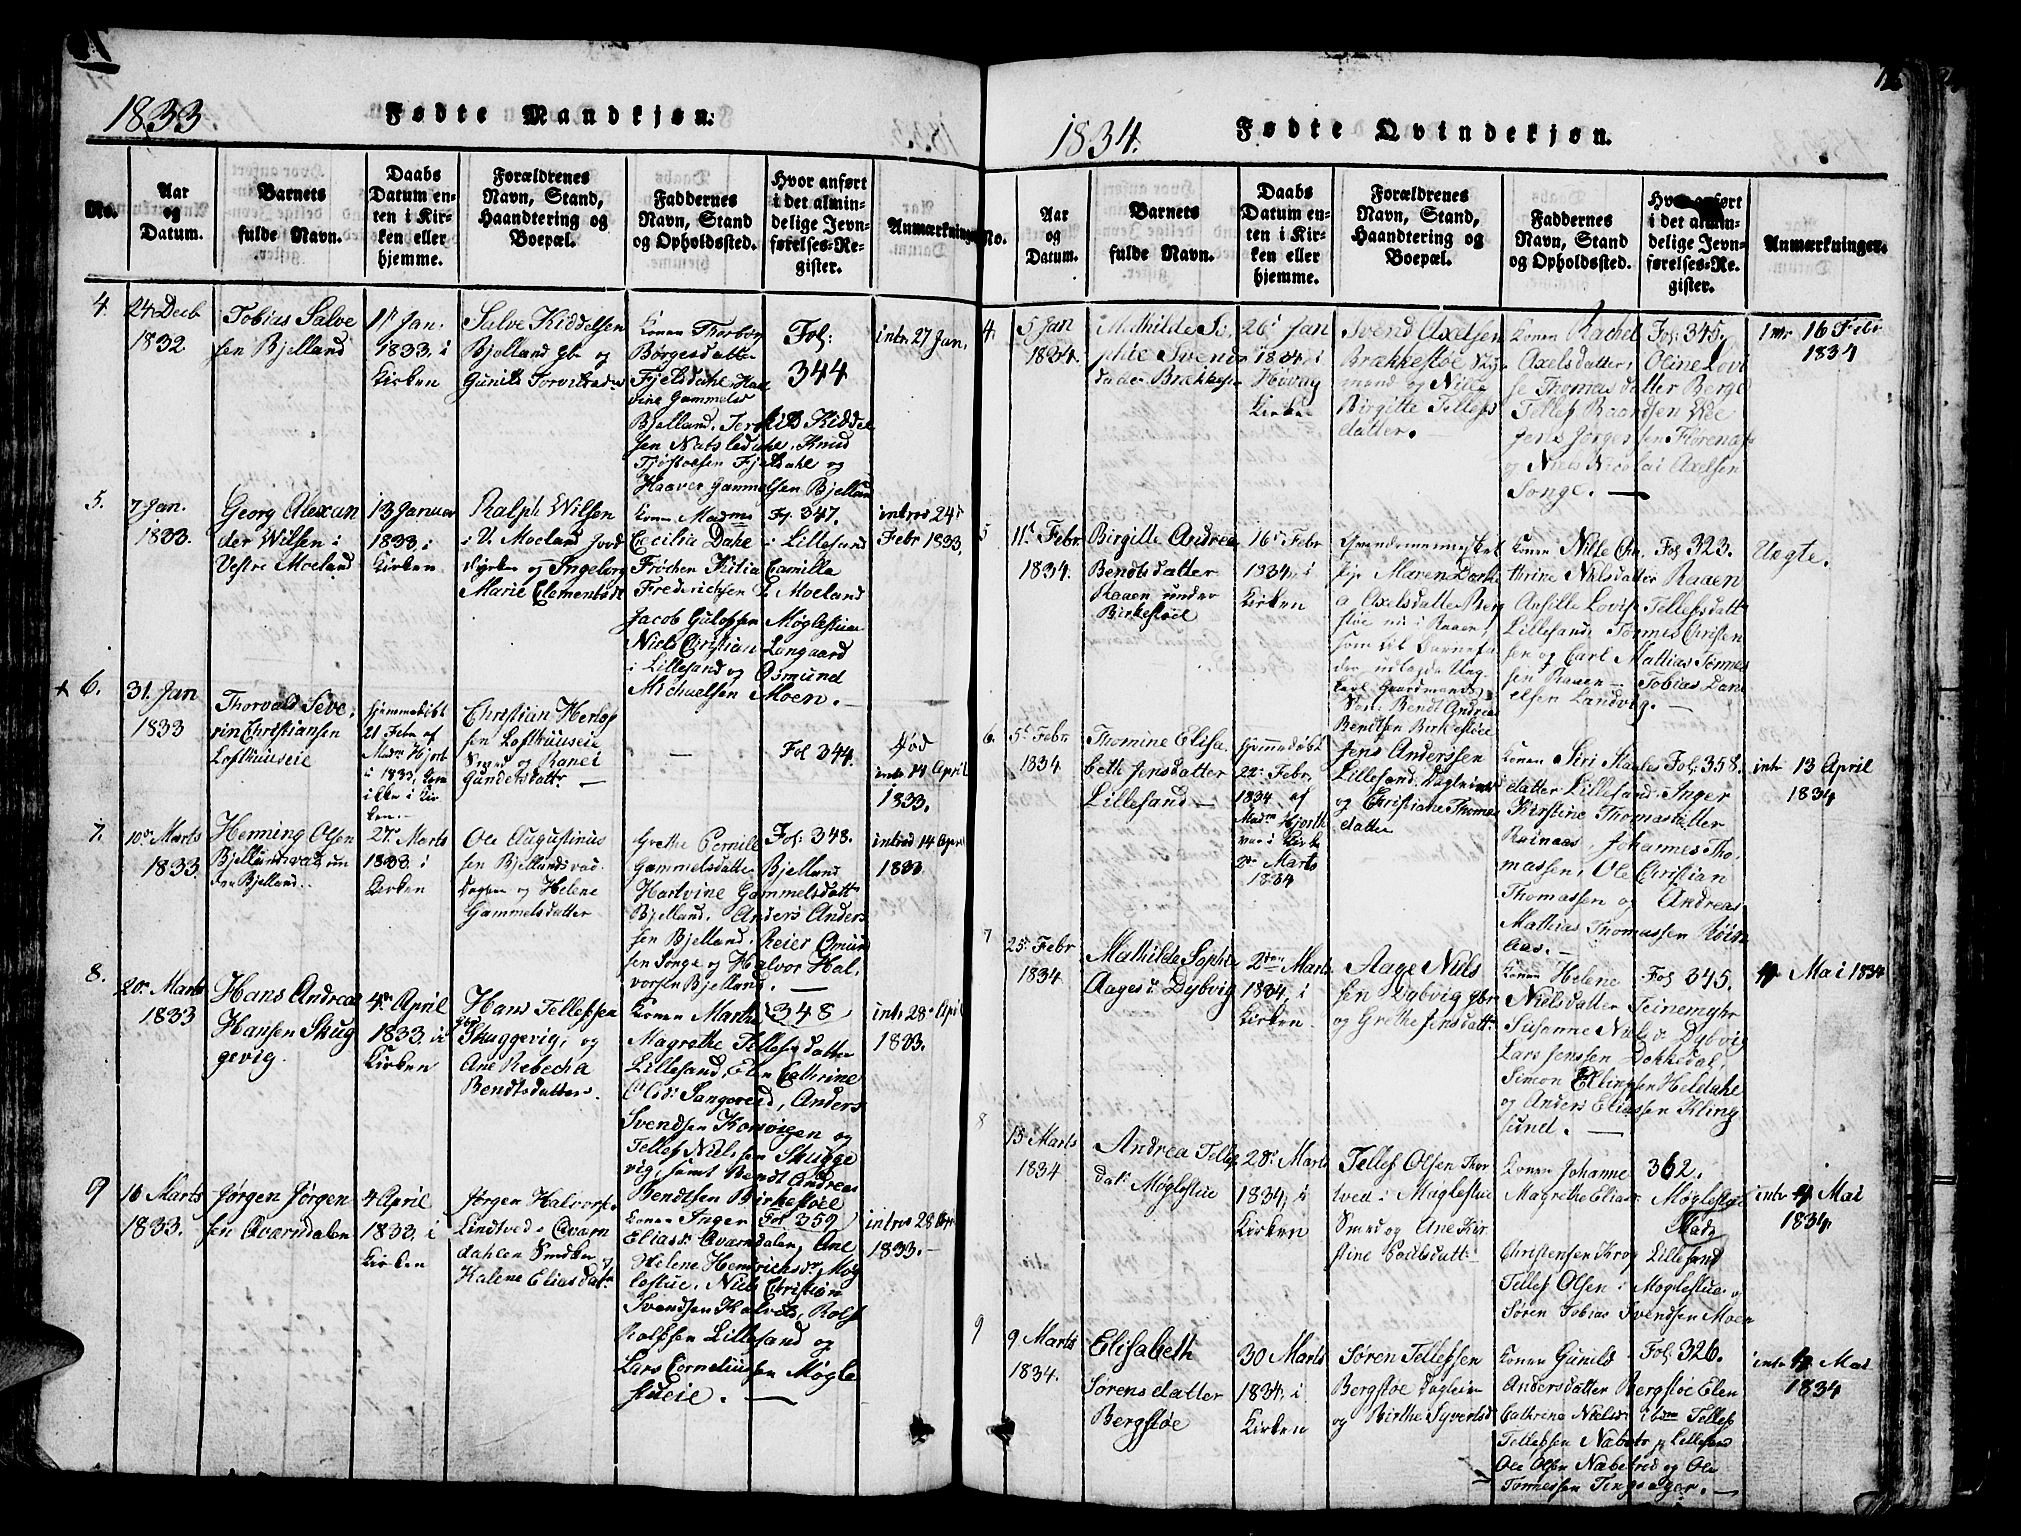 1833
Fødte Mandkjøn.
No.
Aar
og
Datum.
Barnets
fulde Navn.
Daabs
Datum en-
ten i Kir-
ken eller
hjemme.
Forældrenes
Navn, Stand,
Haandtering og
Boepæl.
Faddernes
Navn, Stand
og Opholdssted.
Hvor anført
i det almin-
delige Jevn-
førelses-Re-
gister.
Anmærkninger
4.
24 Decb
1832.
Tobias Salve
sen Bjelland
11t Jan.
1833, i
Kirken
Salve Kiddelsen
Bjelland gbr og
Gunild Torvildsd
Konen Thorbor
Børgesdatter
Fjelsdahl, Hart
vine Gammelsd
Bjelland, Terkild Kiddel
sen Natsledahl, Knud
Tjøstolsen Fjelsdahl og
Haaver Gammelsen Bjelland
Fol:
344
intr. 27 Jan.
5.
7 Jan.
1833.
Georg Alexan
der Wilsen i
Vestre Moeland
13 Januar
1833. i
Kirken
Ralph Wilsen
i V. Moeland Jord
dyrker og Ingeborg
Marie Clementsdt
Konen Madme Fol. 347.
Cecilia Dahl i Lillesand
Frøchen Kitia Camilla
Frederichsen V Moeland
Jacob Gulovsen Møglestue
Niels Christian Longaard
i Lillesand og Osmund
Michaelsen Moen. —
introd 24t
Febr 1833.
6.
31. Jan
1833
Thorvald Seve
rin Christiansen
Lofthuuseie
hjemmedøbt
21 Febr af
Madm Hjort
i 1833, kom
ikke i Kir
ken.
Christian Herlof
sen Lofthuuseie
Smed og Ranei
Gundersdattr —
—
Fol 344.
død
intr 14 April
1833.
7.
10r Marts
1833
Henning Olsen
Bjellandsvad un
der Bjelland.
27r Marts
1833 i
Kirken
Ole Augustinus
sen Bjellandsvad
Dagln og Helene
Gammelsdatter
Grethe Pernille Fol: 348.
Gammelsdatter Bjelland
Hartvine Gammelsdatt
Bjelland, Anders Anders
sen Bjelland, Reier Omun
sen Songe og Halvor Hal
vorsen Bjelland. —
introd 14 April
1833
8.
20r Marts
1833
Hans Andreas
Hansen Skug
gevig.
4r April
1833. i
Kirken
Hans Tellefsen
Skuggevig, og
Ane Rebecha
Bendtsdatter.
Konen Marthe 348
Magrethe Tellefsdatter
Lillesand, Elen Cathrine
Olsd: Sangereid, Anders
Svendsen Korvigen og
Tellef Nielsen Skugge
vig, samt Bendt Andreas
Bendtsen Birkestøel
intr. 28 April
1833.
9
16 Marts
1833.
Jørgen Jørgen
sen Qværndalen
4 April
1833. i
Kirken
Jørgen Halvorse
Lindtved i Qværn
dahlen Snedker
Kalene Eliasdatr
Konen Inger Fol 359
Eliasd: Qværndalen, Ane
Helene Hendrichsdr Møg
lestue, Niels Christian
Svendsen Kalveds, Rolf
Rolfsen Lillesand og
Lars Corneliussen Møgle
stueie. —
introd 28 Apr
1833. —
1834.
Fødte Qvindekjøn.
No.
Aar
og
Datum.
Barnets
fulde Navn.
Daabs
Datum en-
ten i Kir-
ken eller
hjemme.
Forældrenes
Navn, Stand,
Haandtering og
Boepæl.
Faddernes
Navn, Stand
og Opholdssted.
Hvor anført
i det almin-
delige Jevn-
førelses-Re-
gister.
Anmærkninger.
4.
5 Jan
1834.
Mathilde So
phie Svends
datter Brækkestø
26t Jan
1834. i
Høvag
Kirke
Svend Axelsen
Brækkestøe
mand og Nille
Birgitte Tellefs
datter.
Konen Rachel Fol: 345.
Axelsdatter, Oline Lovi
se Thomasdatter Berge
Tellef Baardsen
Jens Jørgensen Florenæs
og Niels Nicolai Axelsen
Songe. —
intr 16 Febr
1834
5
11t Febr
1834.
Birgitte Andrea
Bendtsdatter
Raaen under
Birkestøel
16t Febr
1834. i
Kirken
Qvindemennesket
Maren Dorthe
a Axelsdatter Berg
støe nu i Raaen,
som til Barnefa
der udlagde Ung
karl Gaardmands
Søn: Bendt Andrea
Bendtsen Birkestøel
Konen Nille Ca Fol 323.
thrine Nielsdatter Raaen
Ansille Lovise Tellefsdatt
Lillesand, Tønnes Christen
sen og Carl Mathias Tønnes
sen Raaen — Tobias Dani
elsen Landvig. —
Uegte.
6.
5t Febr
1834.
Thomine Elisa
beth Jensdatter
Lillesand —
hjemmedøbt
22r Febr,
1834 af
Madm Hjorth
var i Kirke
2r Marts
1834
Jens Anderssen
Lillesand, Dagleiner
og Christiane Thomas
datter
Konen Siri Fol: 358.
datter Lillesand, Inger
Kirstine Thomasdatter
Røinaas, Johannes Tho
massen, Ole Christian
Thomassen og Andreas
Mathias Thomassen Røin
aas. —
intr 13 April
1834
7
25t Febr
1834.
Mathilde Sophie
Aagesd. Dybvig
2den Marts
1834. i
Kirken
Aage Niels
sen Dybvig gbr
og Grethe Jensdatt
Konen Helene Fol 345.
Nielsdatter Teinemyhr
Susanne Nielsd: Dybvig
Lars Jenssen Dokkedal,
Simon Ellingsen Heldahl
og Anders Eliassen Kling
sund. —
4 Mai 1834
8
15 Marts
1834
Andrea Tellefs
dat. Møglestue
28t Marts
1834, i
Kirken
Tellef Olsen Thor
tved i Møglestue
Smed og Ane Kir
stine Poulsdatt
Konen Johanne 362.
Magrethe Eliasd Møglestue
Mads
Christensen Krog Lillesand
Tellef Olsen i Møglestue og
Søren Tobias Svendsen Moen
intr 4 Mai
1834.
9
9 Marts
1834.
Elisabeth
Sørensdatter
Bergstøe
30 Marts
1834. i
Kirken
Søren Tellefsen
Bergstøe Daglein
og Birthe Syversd
Konen Gunild Fol; 326.
Andersdatter Bergstøe Elen
Cathrine Nielsd ibm Tellef
Tellefsen Næbstr p Lillesand
Ole Olsen Næbstrød og Ole
Tønnessen Tingsager. —
intr 4 Mai
1834